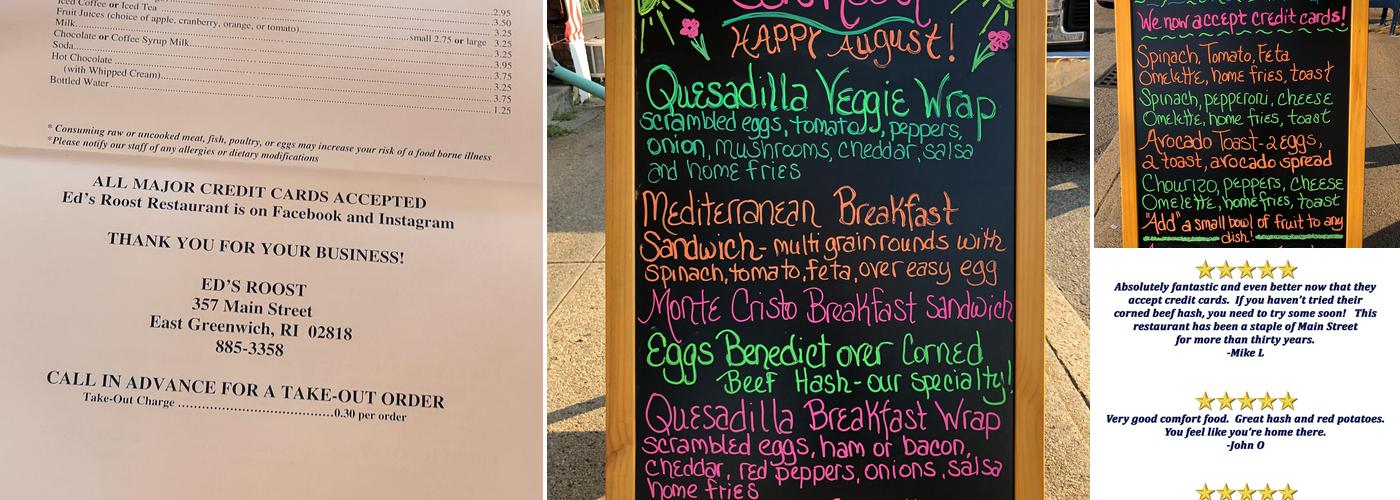 Iced Coffee or Iced Tea
2.95
Fruit Juices (choice of apple, cranberry, orange, or tomato)
3.50
Milk
small 2.75 or large 3.25
Chocolate or Coffee Syrup Milk
3.25
Soda
3.95
Hot Chocolate
3.75
(with Whipped Cream)
3.25
Bottled Water
3.75
1.25
* Consuming raw or uncooked meat, fish, poultry, or eggs may increase your risk of a food borne illness
*Please notify our staff of any allergies or dietary modifications
ALL MAJOR CREDIT CARDS ACCEPTED
Ed's Roost Restaurant is on Facebook and Instagram
THANK YOU FOR YOUR BUSINESS!
ED'S ROOST
357 Main Street
East Greenwich, RI 02818
885-3358
CALL IN ADVANCE FOR A TAKE-OUT ORDER
Take-Out Charge ........................................0.30 per order
HAPPY August!
Quesadilla Veggie Wrap
scrambled eggs, tomato, peppers,
onion, mushrooms, cheddar, salsa
and home fries
Mediterranean Breakfast
Sandwich- multi grain rounds with
spinach, tomato, feta, over easy egg
Monte Cristo Breakfast Sandwich
Eggs Benedict over Corned
Beef Hash - our specialty!
Quesadilla Breakfast Wrap
scrambled eggs, ham or bacon,
cheddar, red peppers, onions, salsa
home fries
We now accept credit cards!
Spinach, Tomato, Feta
Omelette, home fries, toast
Spinach, pepperoni, cheese
Omelette, home fries, toast
Avocado Toast-2 eggs,
2 toast, avocado spread
Chourizo, peppers, cheese
Omelette, homefries, toast
"Add" a small bowl of fruit to any
dish!
Absolutely fantastic and even better now that they
accept credit cards. If you haven't tried their
corned beef hash, you need to try some soon! This
restaurant has been a staple of Main Street
for more than thirty years.
-Mike L
Very good comfort food. Great hash and red potatoes.
You feel like you're home there.
-John O